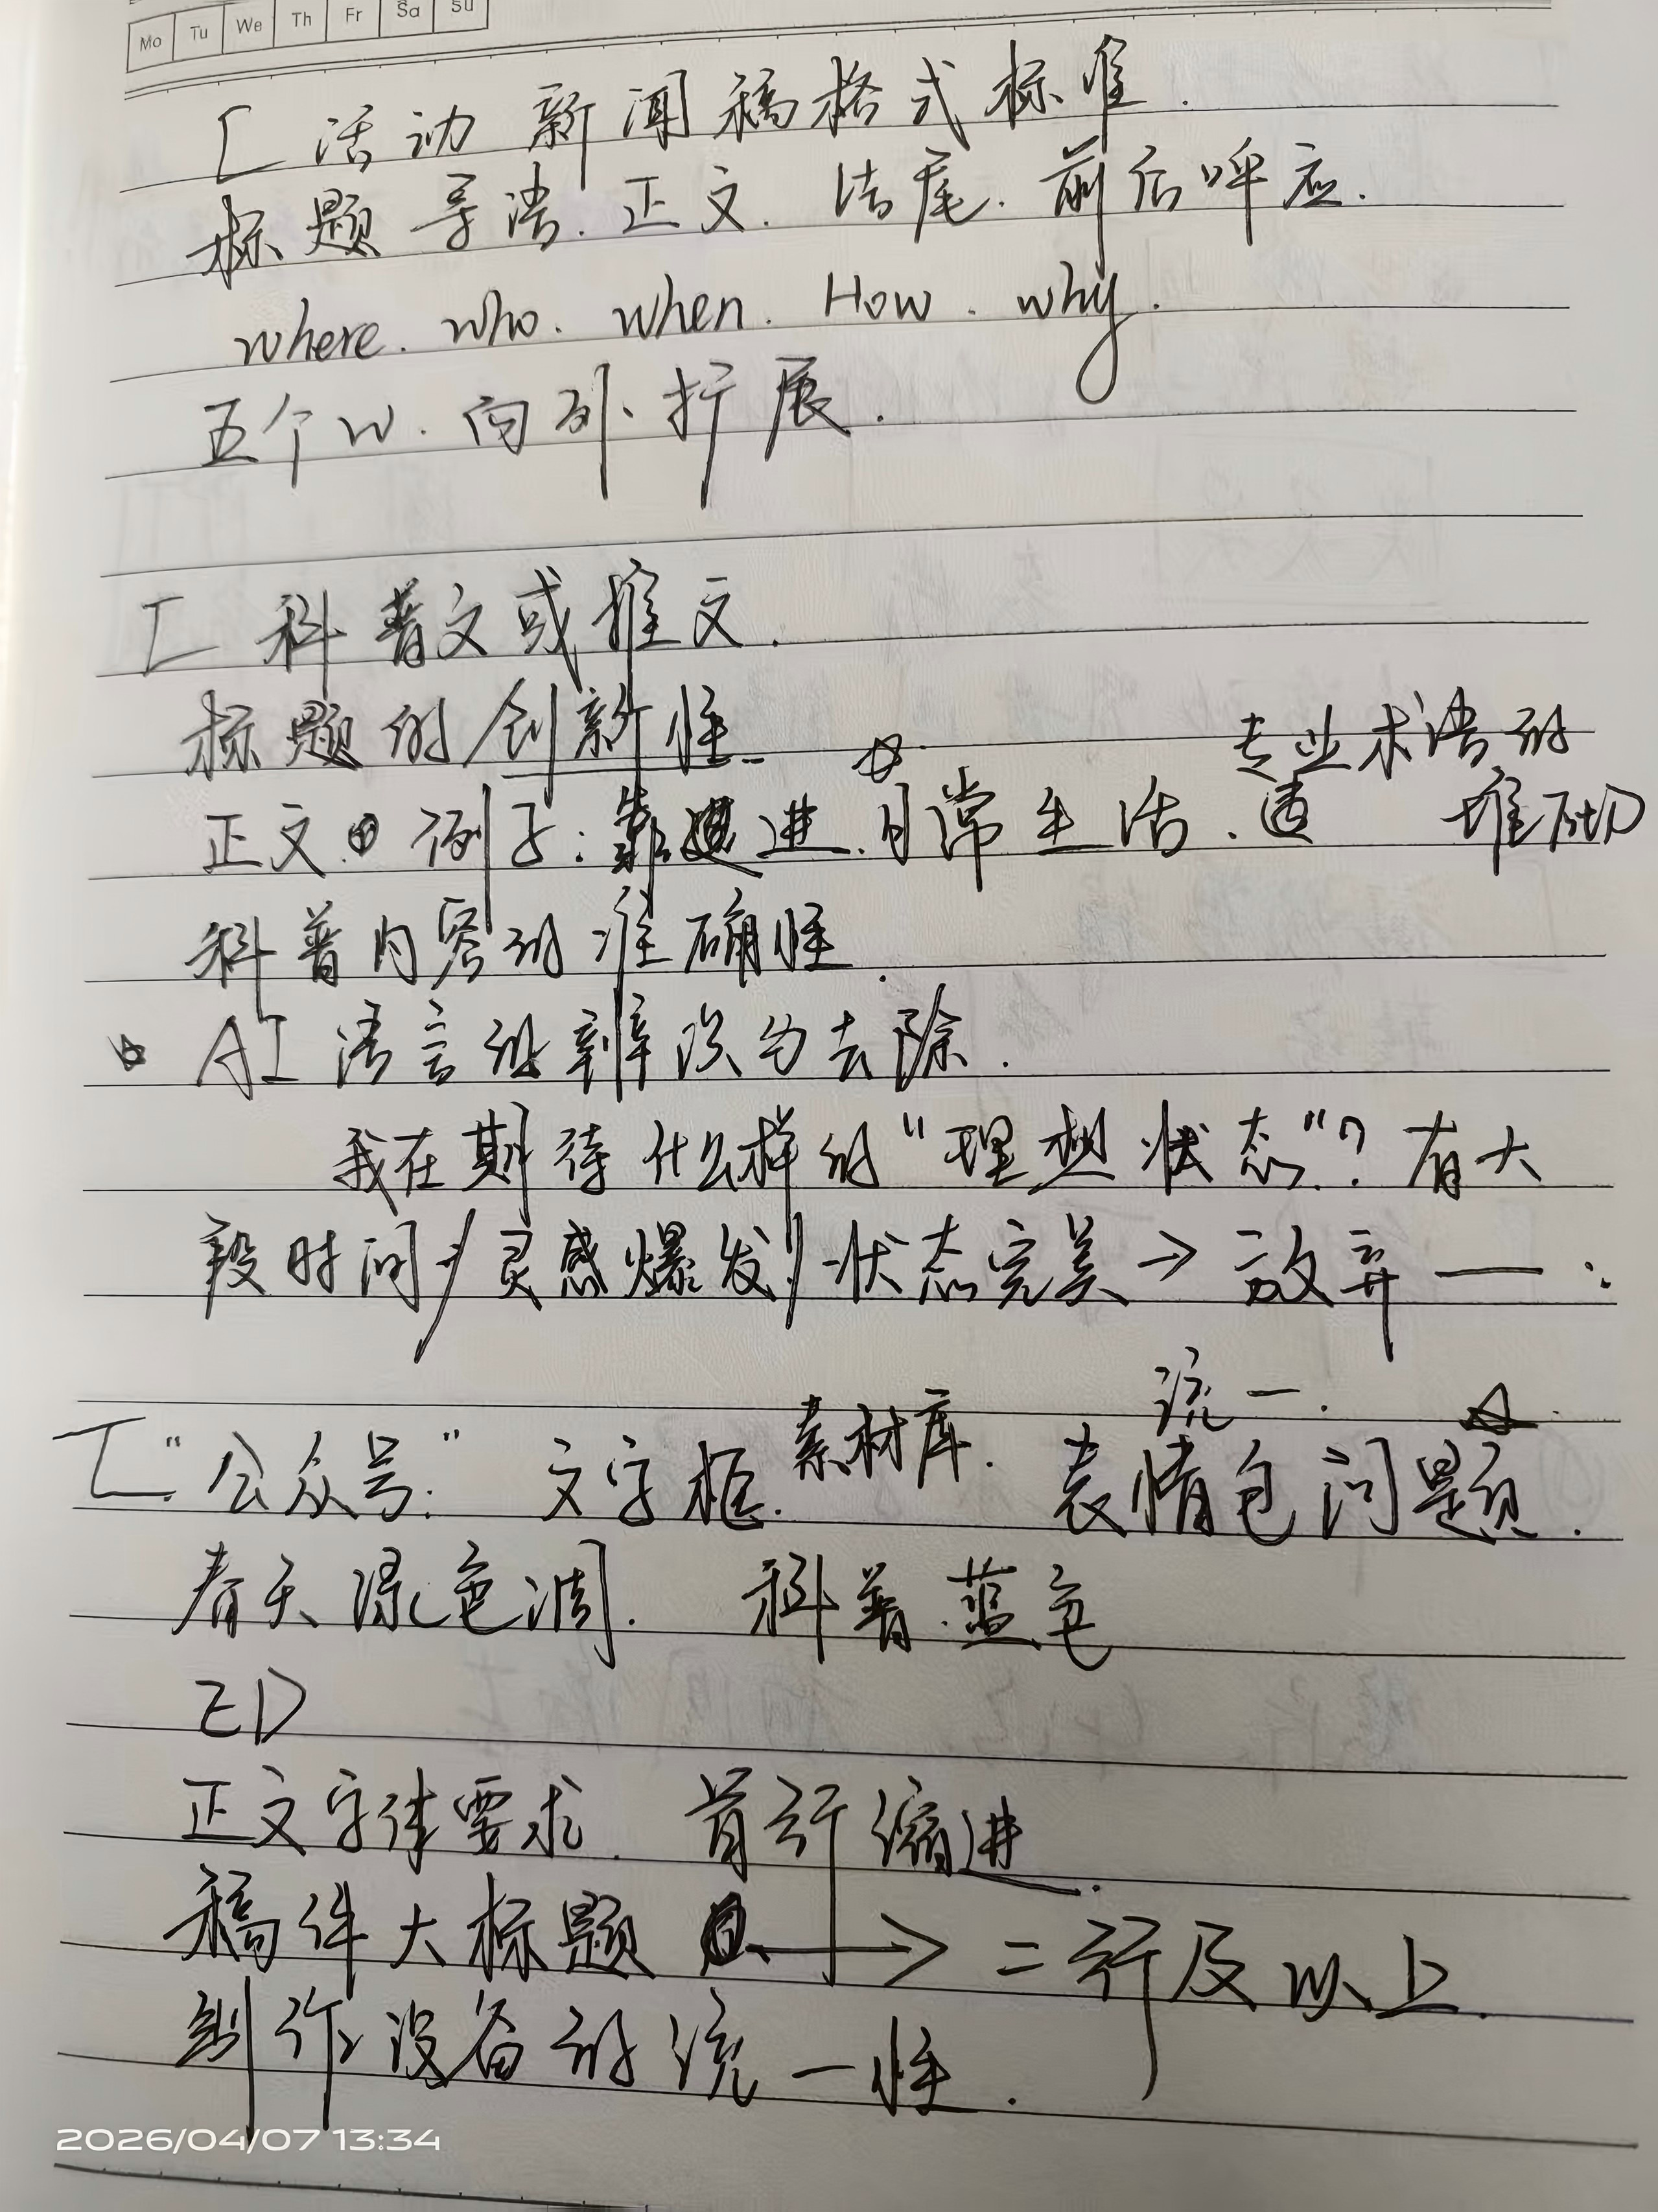 Mo Tu We Th Fr Sa Su
[ 活动新闻稿格式标准.
标题 导语. 正文. 结尾. 前后呼应.
where. who. when. How. why.
五个W. 向外扩展.
[ 科普文或推文.
标题的创新性.
专业术语的
正文. 例子: 靠进 日常生活. 堆砌
科普内容的准确性.
AI语言的辨识与去除.
我在期待什么样的“理想状态”? 有大
段时间 / 灵感爆发 / 状态完美 → 放弃 —
统一.
[ “公众号:” 文字框. 素材库. 表情包问题.
春天绿色调. 科普.蓝色
正文字体要求. 首行缩进.
稿件大标题 → 二行及以上.
制作设备的统一性.
2026/04/07 13:34